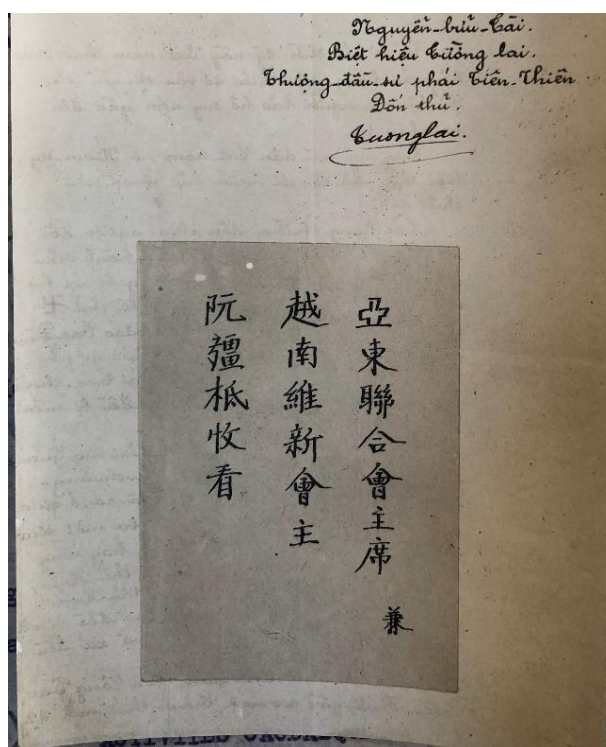 Nguyễn-bửu-Tài.
Biệt hiệu Tương lai.
Thượng-đầu-sư phái Tiên-Thiên
Đốn thủ.
Tuonglai.
亞東聯合會主席 兼
越南維新會主
阮彊柢收看